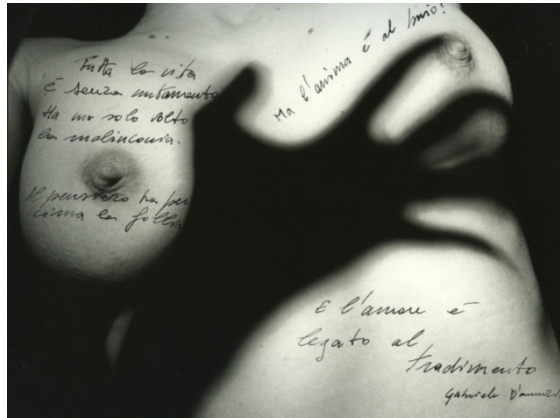 Tutta la vita
è senza mutamento
Ha un solo volto
la malinconia.
Il pensiero ha per
cima la follia
Ma l'anima è al buio!
E l'amore è
legato al
tradimento
Gabriele D'Annun